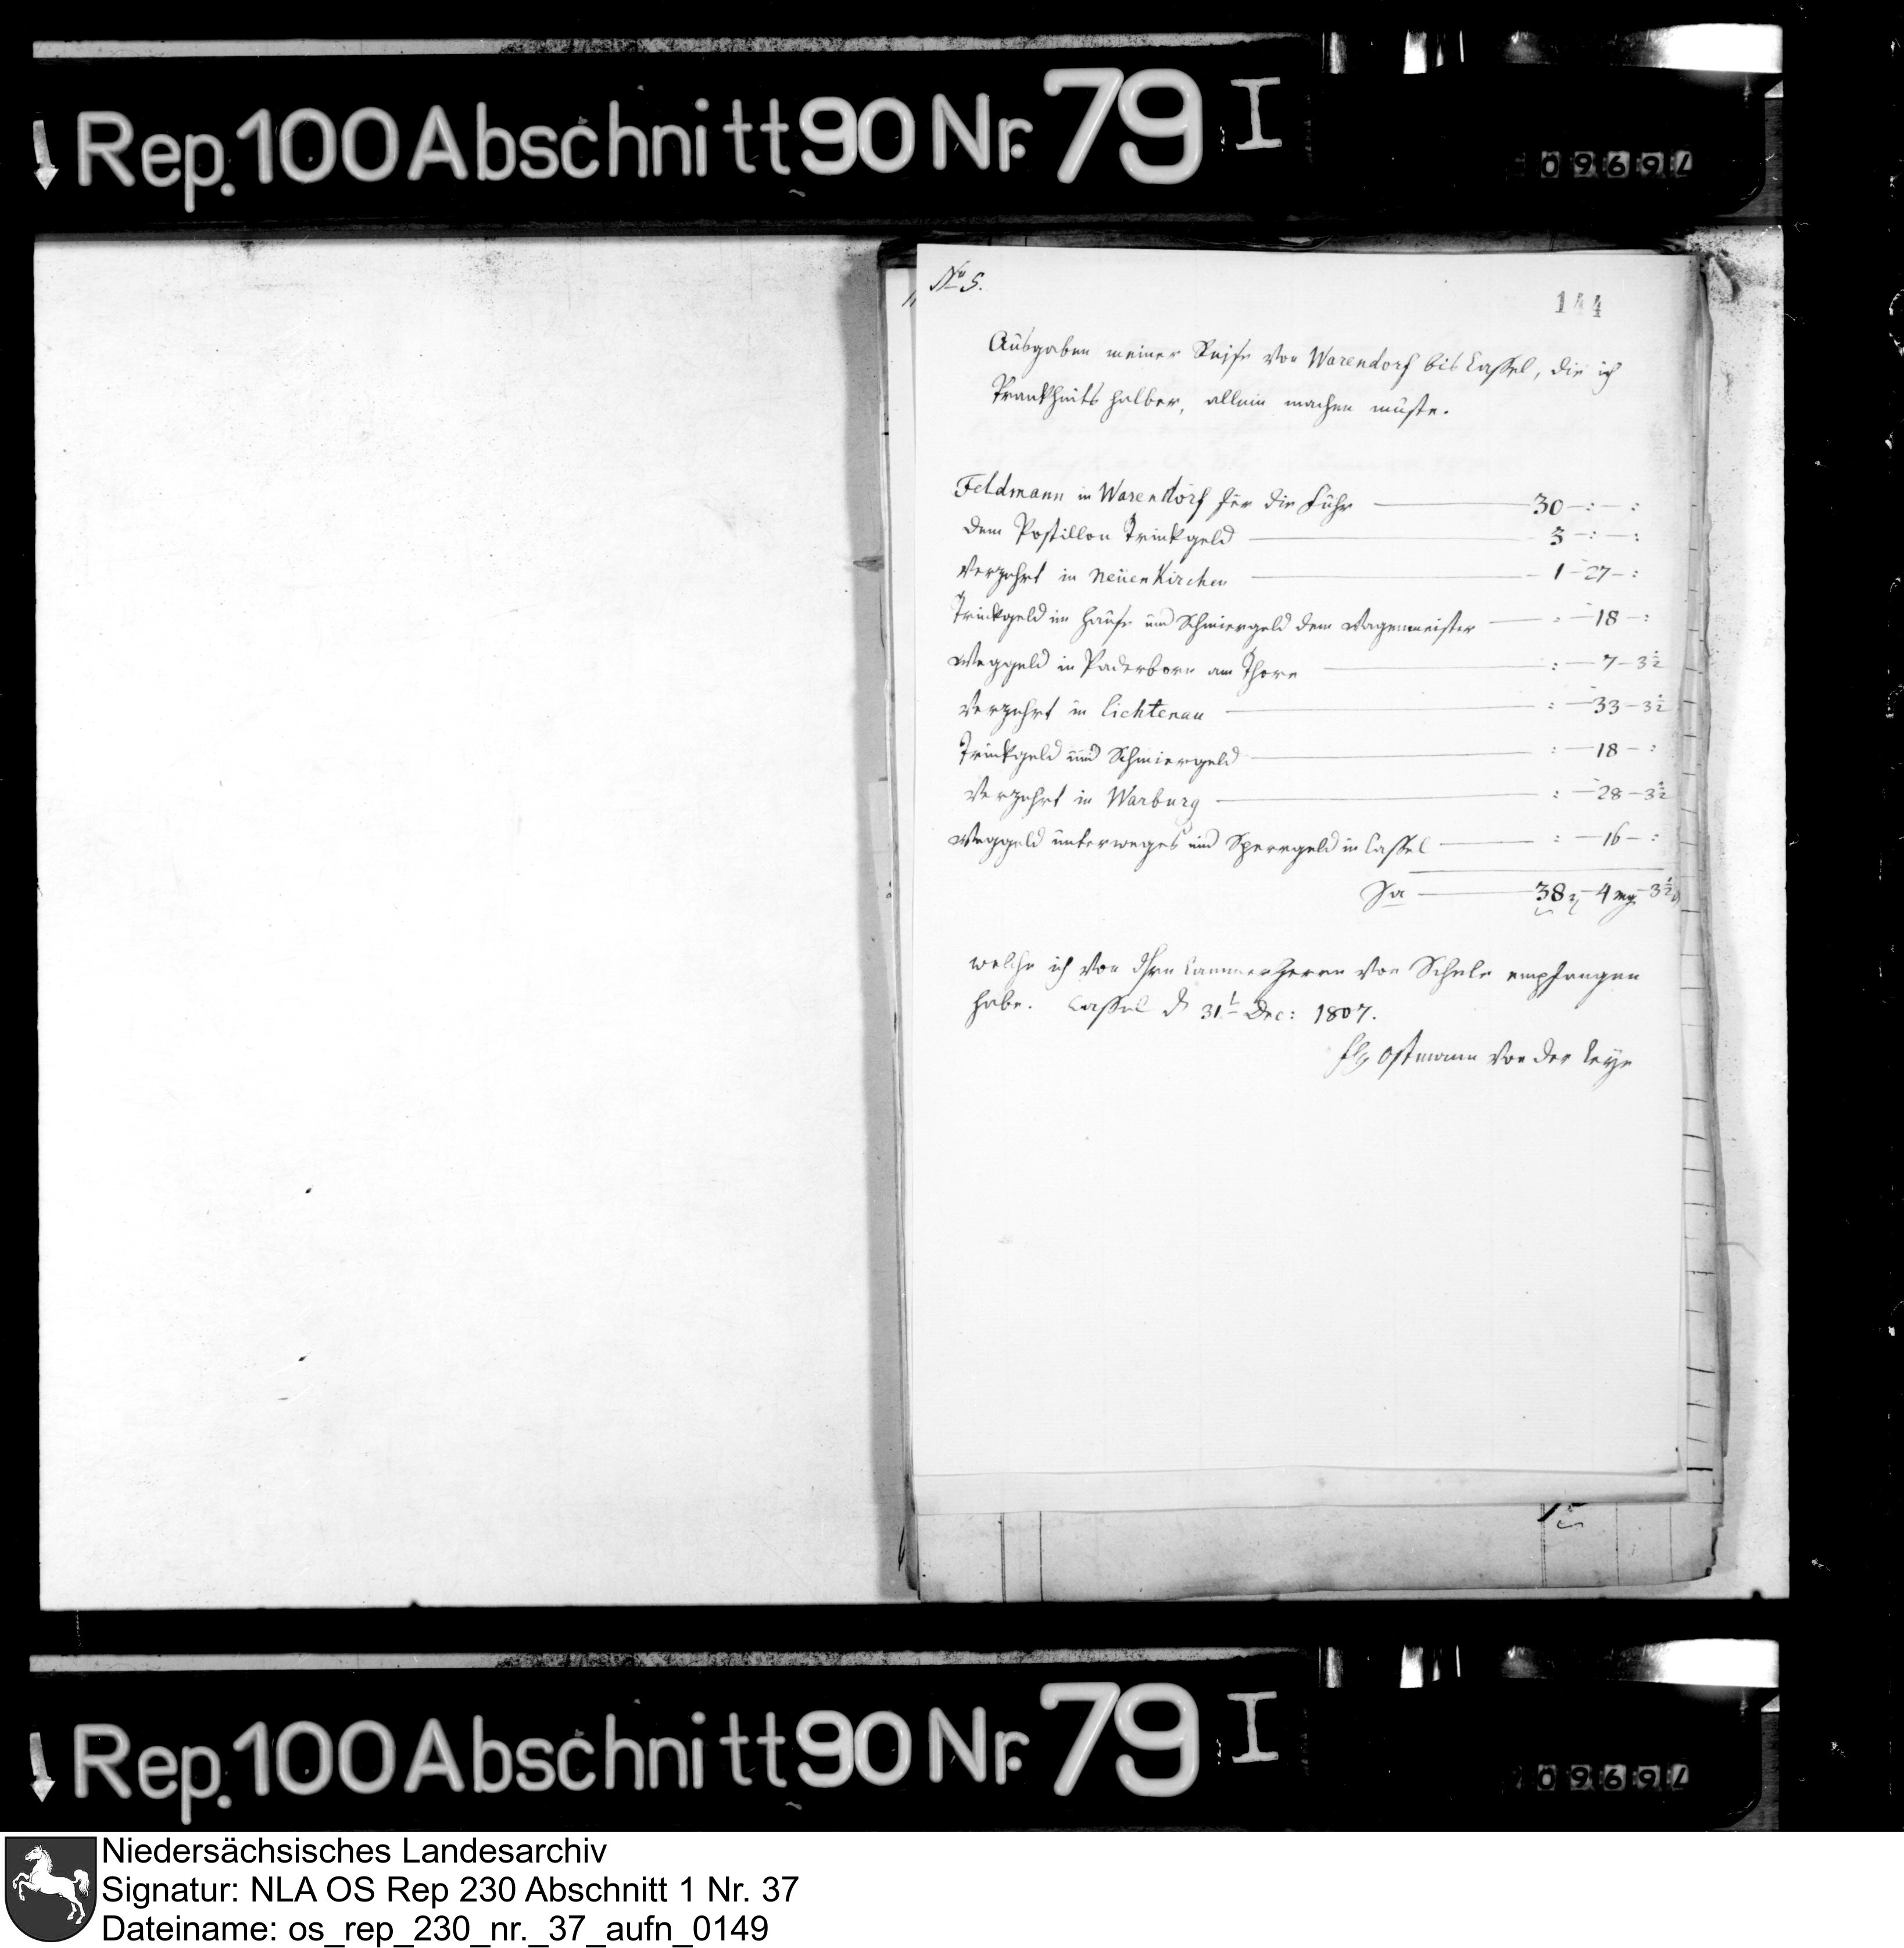 Rep. 100 Abschnitt 90 Nr. 79 I
09697
No 5.
144
Ausgaben meiner Reise von Warendorf bis Cassel, die ich
Krankheits halber, allein machen muste.
Feldmann in Warendorf für die Fuhr — 30 -:-:
Dem Postillon Trinkgeld — 3 -:-:
Verzehrt in Neuenkirchen — 1 - 27 -:
Trinkgeld im Hause und Schmiergeld dem Wagenmeister — : - 18 -:
Weggeld in Paderborn am Thore — : - 7 - 3½
Verzehrt in Lichtenau — : - 33 - 3½
Trinkgeld und Schmiergeld — : - 18 -:
Verzehrt in Warburg — : - 28 - 3½
Weggeld unterweges und Sperrgeld in Cassel — : - 16 -:
Sa — 38 - 4 mg - 3½
welche ich von Hrn Cammerherrn von Schele empfangen
habe. Cassel d 31t Dec: 1807.
Ostmann von der Leye
Rep. 100 Abschnitt 90 Nr. 79 I
09697
Niedersächsisches Landesarchiv
Signatur: NLA OS Rep 230 Abschnitt 1 Nr. 37
Dateiname: os_rep_230_nr._37_aufn_0149